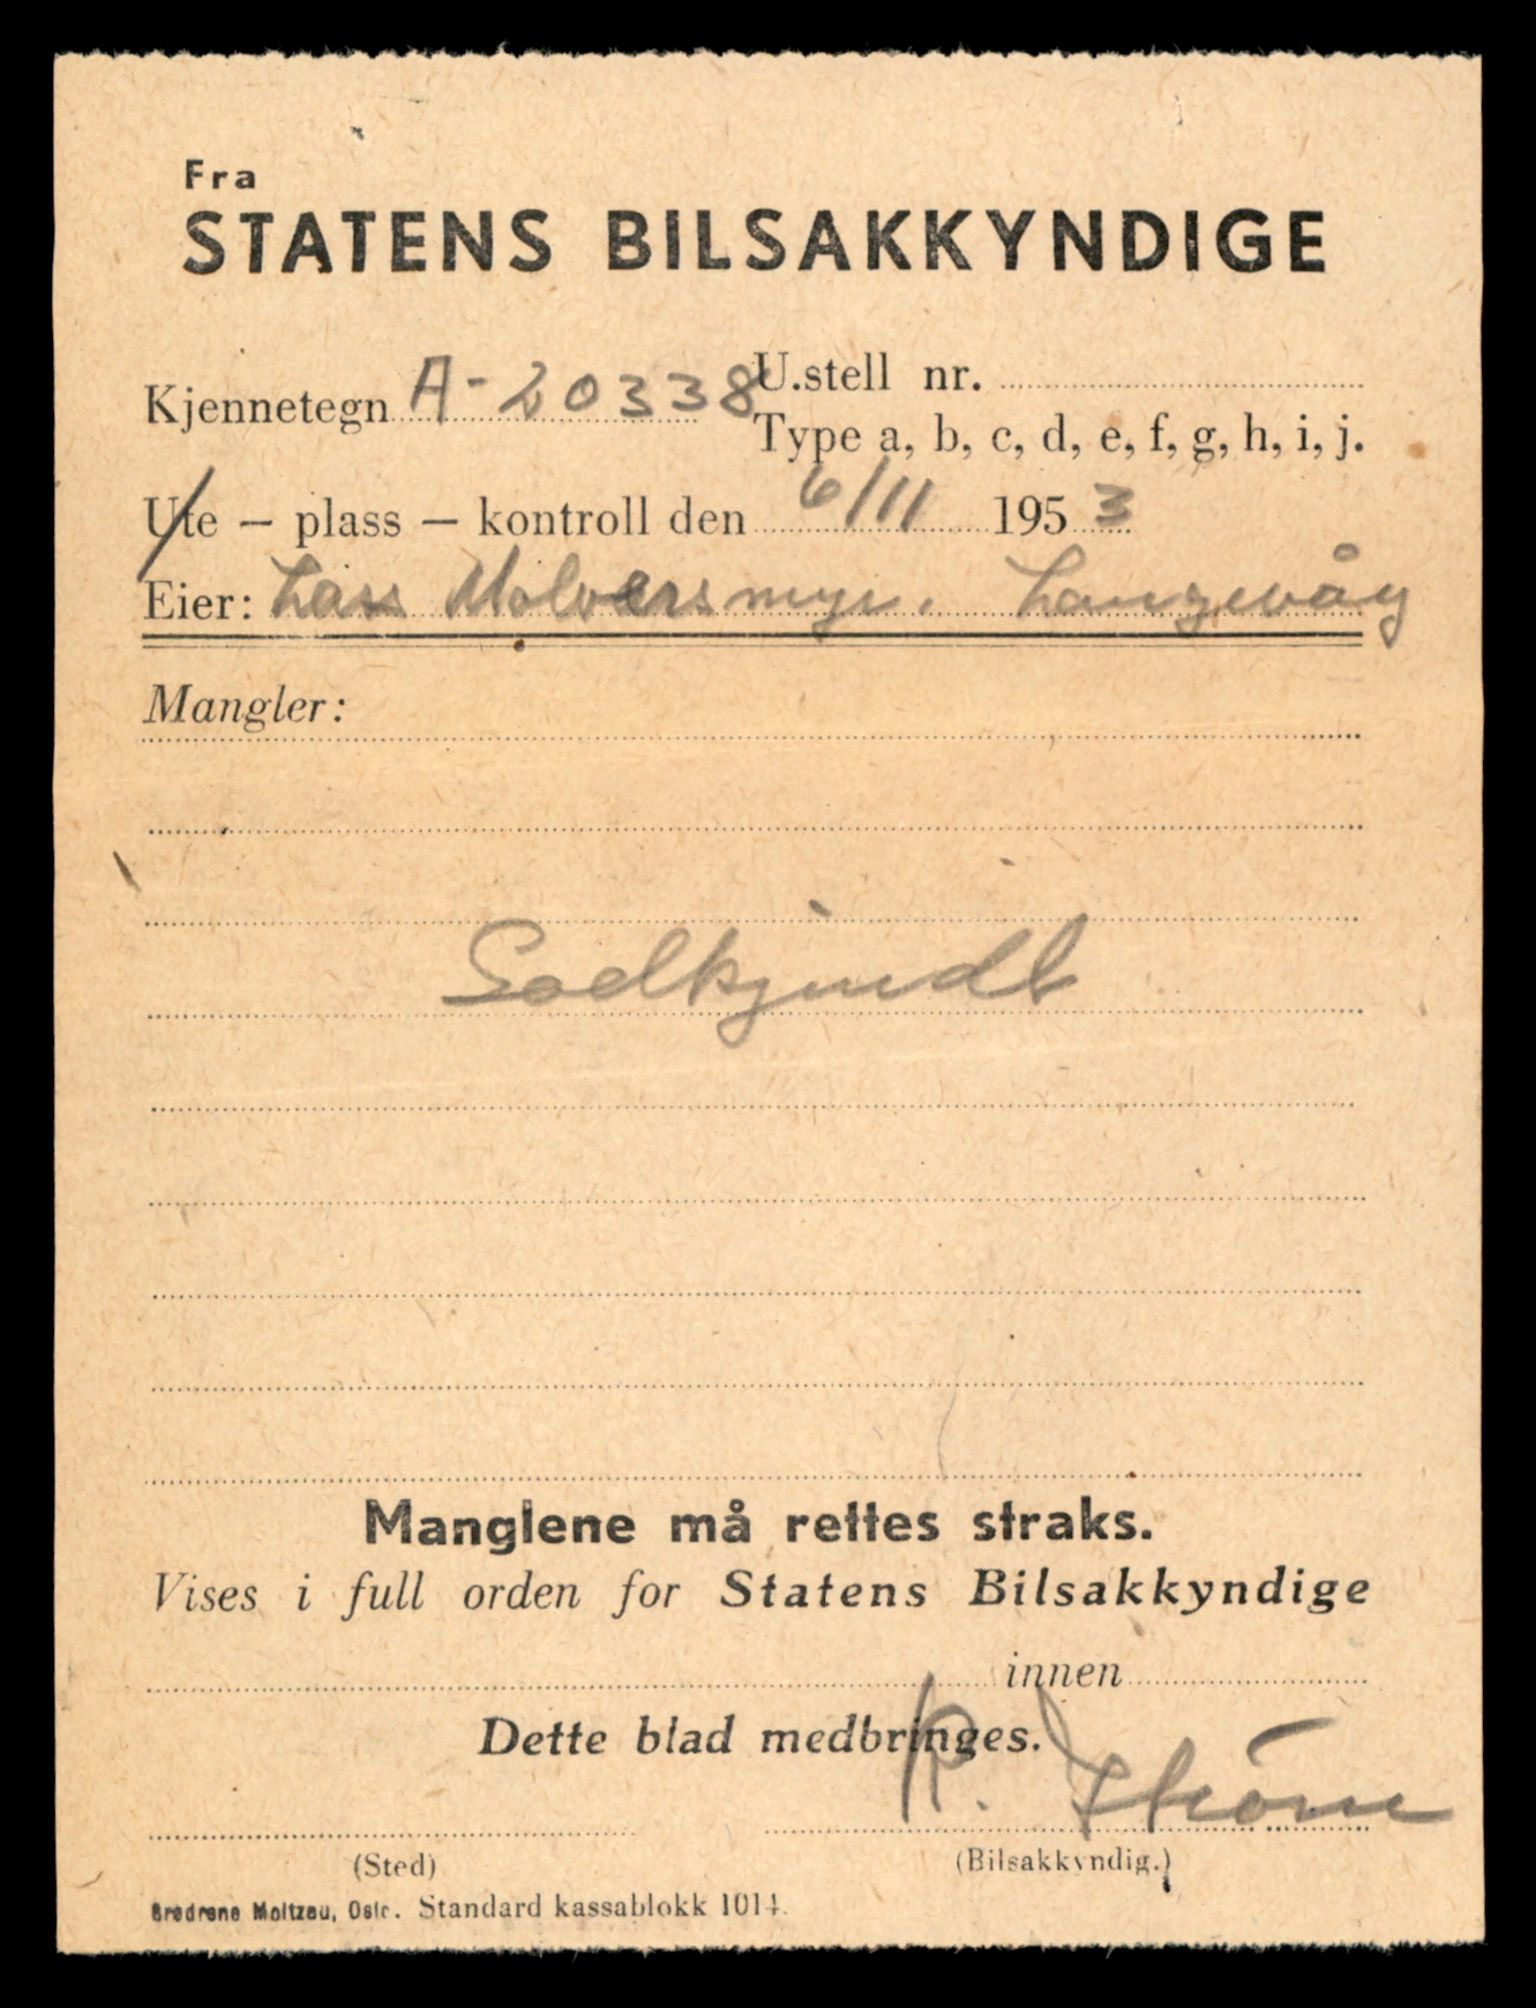 Fra
STATENS BILSAKKYNDIGE
Kjennetegn A-20338 U.stell nr.
Type a, b, c, d, e, f, g, h, i, j.
Ute — plass — kontroll den 6/11 1953
Eier: Lars Molversmyr. Langevåg
Mangler:
Godkjendt
Manglene må rettes straks.
Vises i full orden for Statens Bilsakkyndige
innen
Dette blad medbringes.
K. Strøm
(Sted) (Bilsakkyndig.)
Brødrene Moltzau, Oslo. Standard kassablokk 1014.